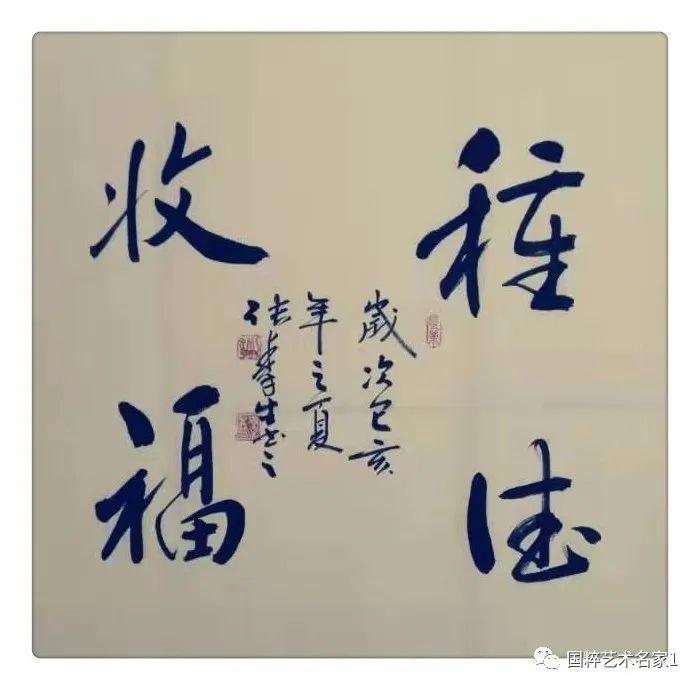 種德
收福
歲次己亥
年之夏
生书之
国粹艺术名家1